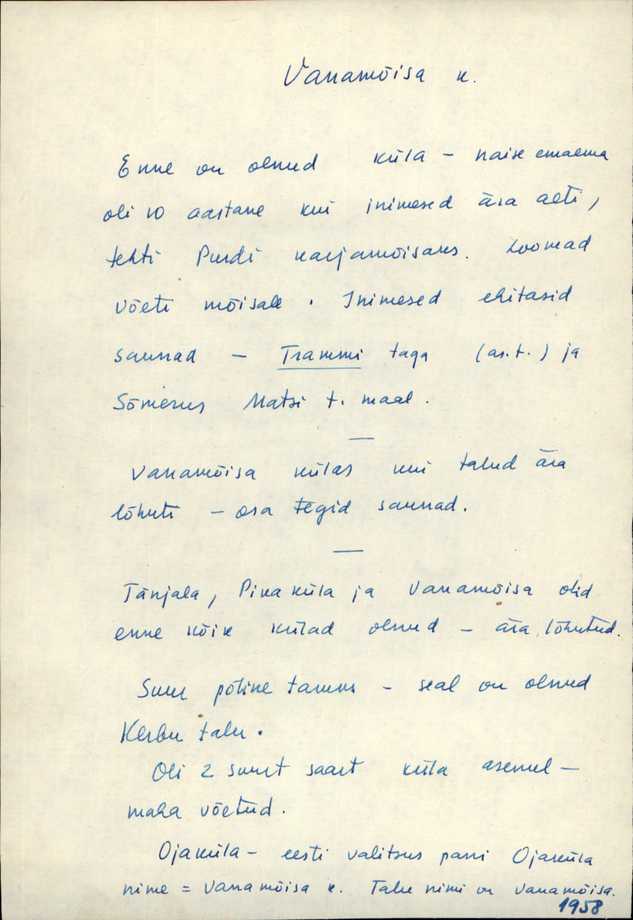 Vanamõisa k.
Enne on olnud küla - naise emaema
oli 10 aastane kui inimesed ära aeti,
tehti Purdi karjamõisaks. Loomad
võeti mõisale. Inimesed ehitasid
saunad - Trammi taga (as.t.) ja
Sõmerus Matsi t. maal.
—
Vanamõisa külas kui talud ära
lõhuti - osa tegid saunad.
—
Tänjala, Pikaküla ja Vanamõisa olid
enne kõik külad olnud - ära lõhutud.
Suur põline tamm - seal on olnud
Kerbu talu.
Oli 2 suurt saart küla asemel -
maha võetud.
Ojaküla - eesti valitsus pani Ojaküla
nime = Vanamõisa k. Talu nimi on Vanamõisa.
1958